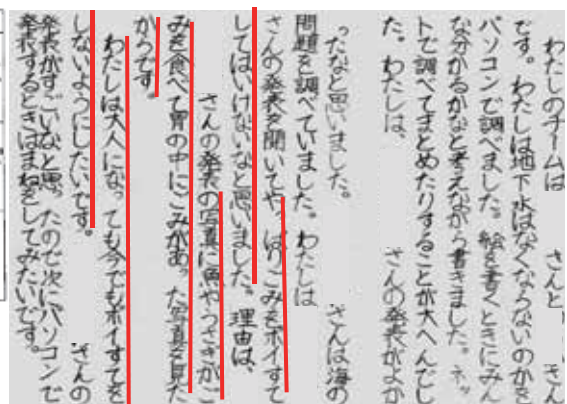 わたしのチームは　　　さんと　　さん
です。わたしは地下水はなくならないのかを
パソコンで調べました。絵を書くときにみん
な分かるかなと考えながら書きました。ネッ
トで調べてまとめたりすることが大へんでし
た。わたしは、　　　さんの発表がよか
ったなと思いました。　　　さんは海の
問題を調べていました。わたしは
さんの発表を聞いてやっぱりごみをポイすて
してはいけないなと思いました。理由は、
さんの発表の写真に魚やうさぎがご
みを食べて胃の中にごみがあった写真を見た
からです。
わたしは大人になっても今でもポイすてを
しないようにしたいです。　　　さんの
発表がすごいなと思ったので次にパソコンで
発表するときはまねをしてみたいです。